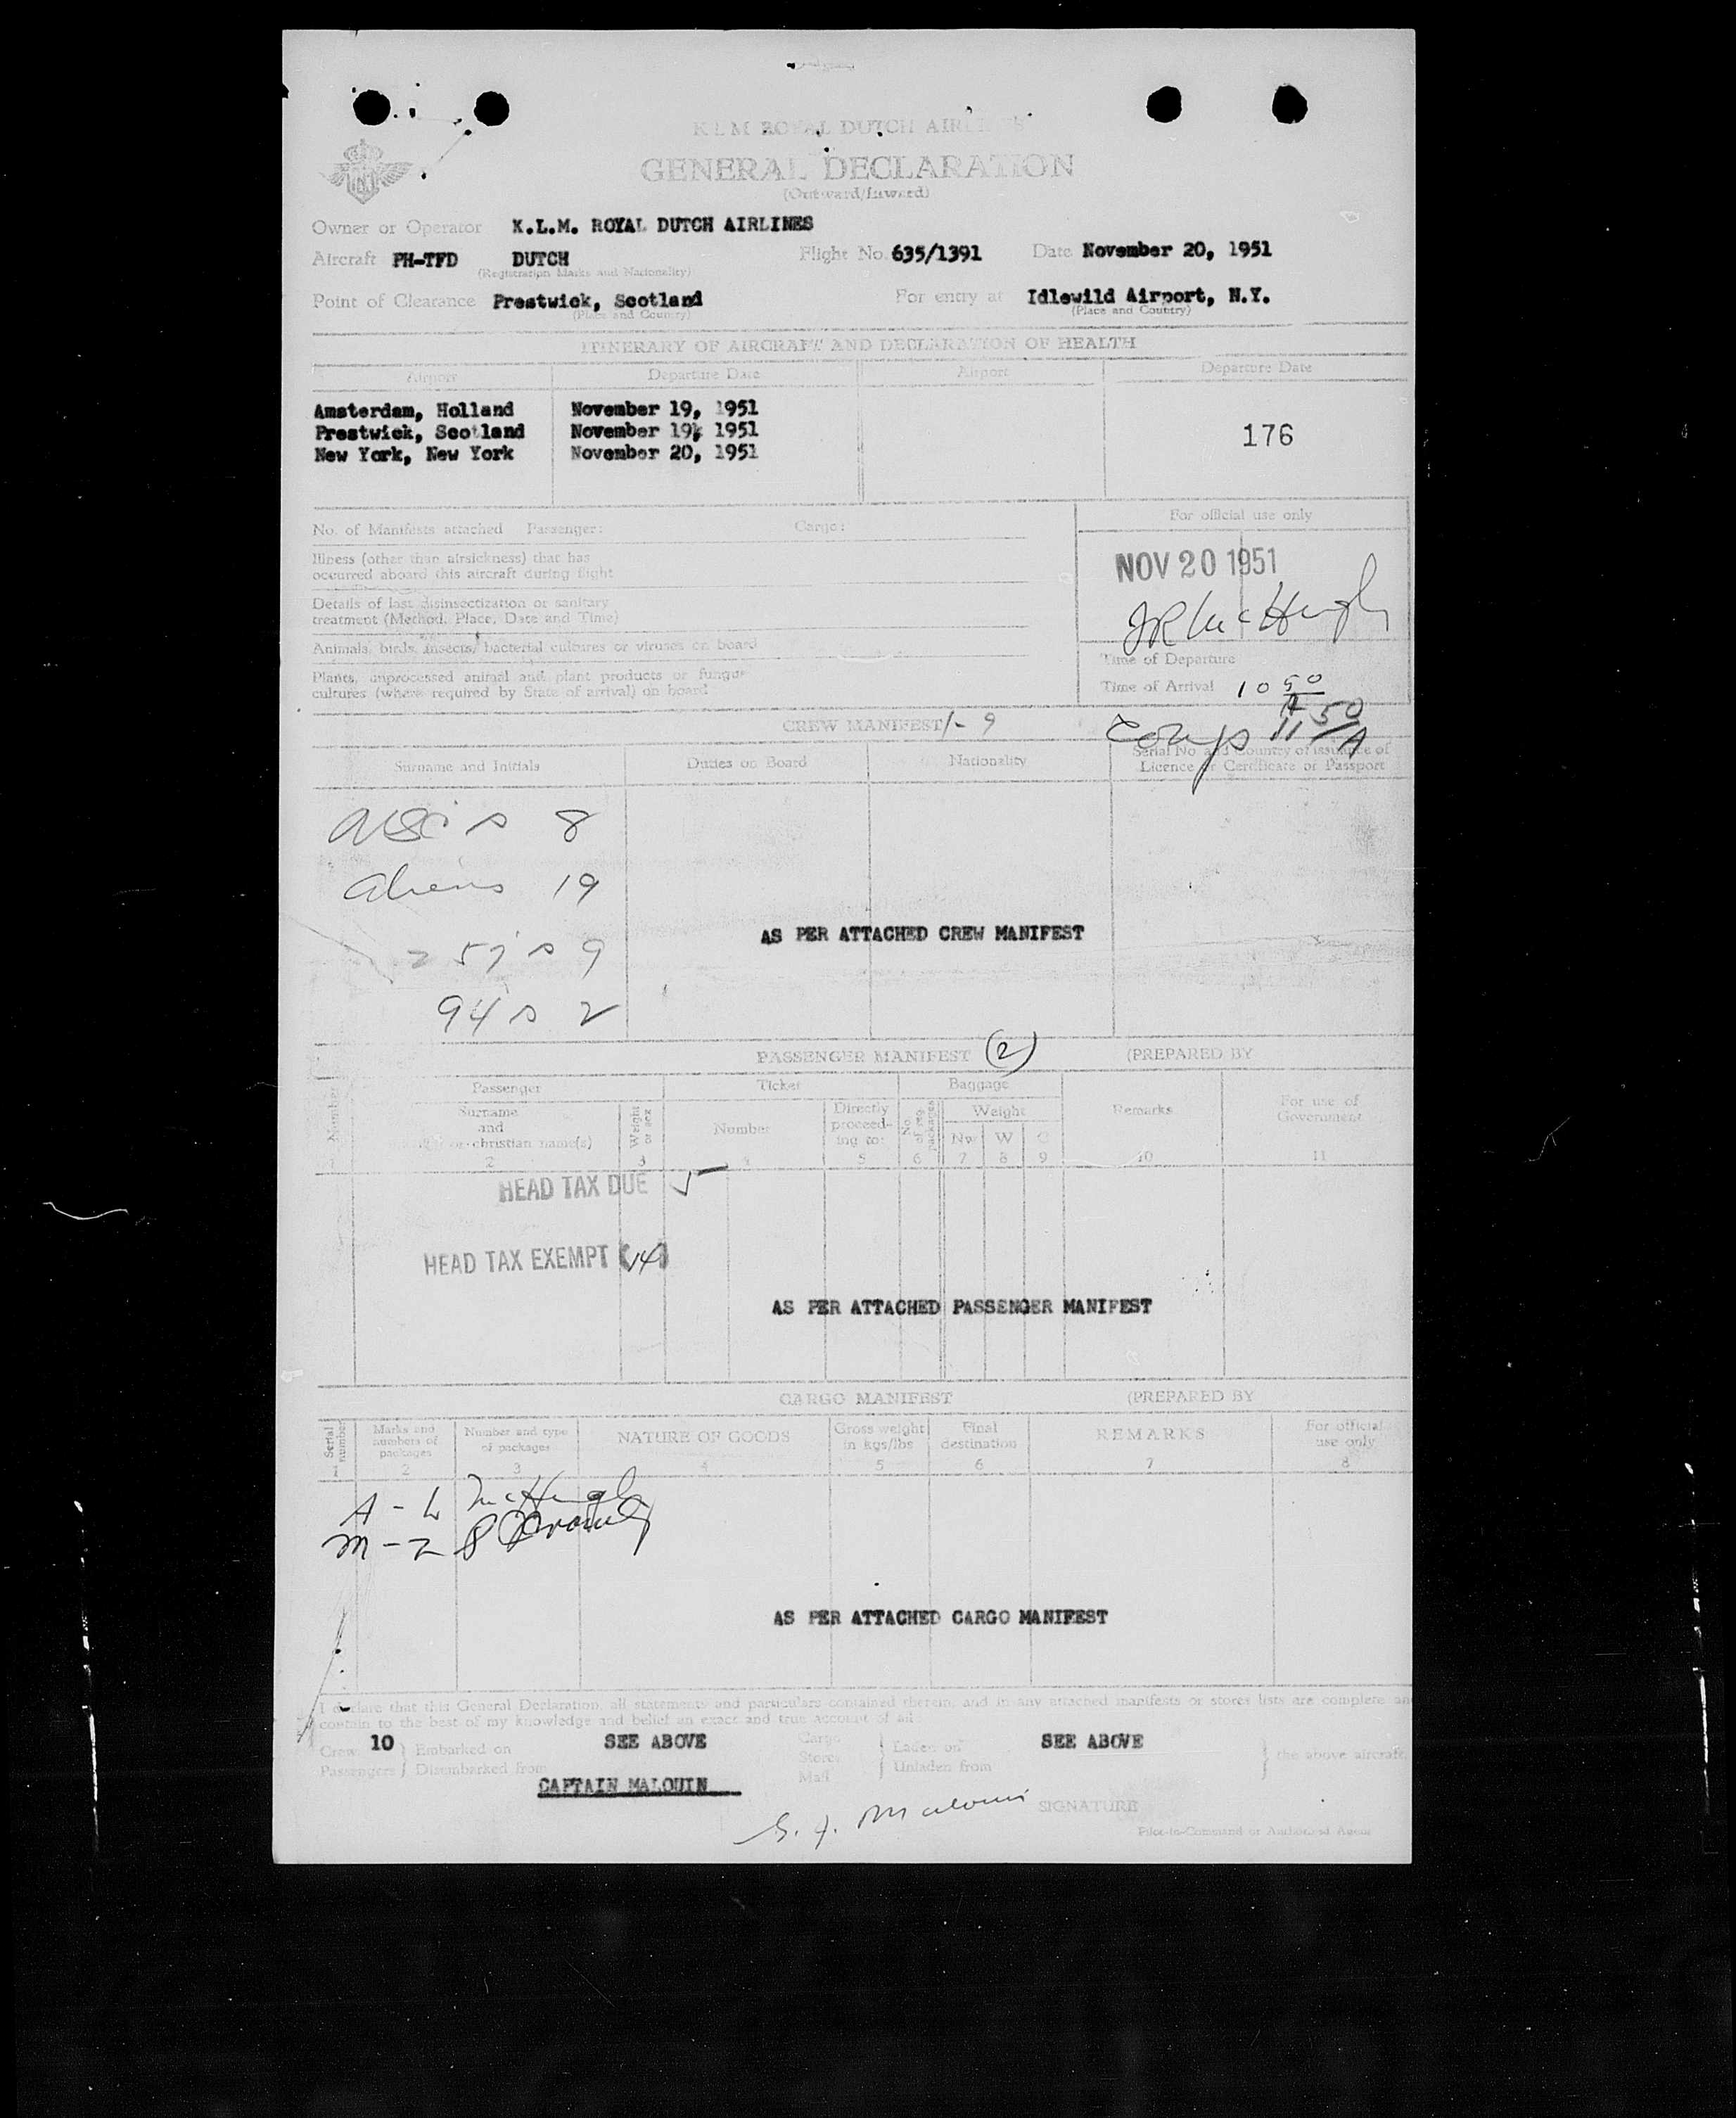 K.L.M ROYAL DUTCH AIRLINES
GENERAL DECLARATION
(Outward/Inward)
Owner or Operator K.L.M. ROYAL DUTCH AIRLINES
Aircraft PH-TFD DUTCH Flight No. 635/1391 Date November 20, 1951
(Registration Marks and Nationality)
Point of Clearance Prestwick, Scotland For entry at Idlewild Airport, N.Y.
(Place and Country) (Place and Country)
ITINERARY OF AIRCRAFT AND DECLARATION OF HEALTH
Airport Departure Date Airport Departure Date
Amsterdam, Holland November 19, 1951
Prestwick, Scotland November 19, 1951
176
New York, New York November 20, 1951
No. of Manifests attached Passenger: Cargo:
For official use only
Illness (other than airsickness) that has
occurred aboard this aircraft during flight
NOV 20 1951
Details of last disinsectization or sanitary
treatment (Method, Place, Date and Time)
JR McHugh
Animals, birds, insects, bacterial cultures or viruses on board
Time of Departure
Plants, unprocessed animal and plant products or fungus
cultures (where required by State of arrival) on board
Time of Arrival 10 50 A
CREW MANIFEST 1-9
Comp 11 50/A
Surname and Initials Duties on Board Nationality
Serial No. and Country of issuance of
Licence or Certificate or Passport
8
aliens 19
AS PER ATTACHED CREW MANIFEST
9
94 s 2
PASSENGER MANIFEST (2) (PREPARED BY
Number
Passenger Ticket Baggage
Surname
and
or christian name(s)
Weight or sex
Number
Directly proceeding to:
No. of reg. packages
Weight
Nw W C
Remarks
For use of Government
1 2 3 4 5 6 7 8 9 10 11
HEAD TAX DUE 5
HEAD TAX EXEMPT (14)
AS PER ATTACHED PASSENGER MANIFEST
CARGO MANIFEST (PREPARED BY
Serial number
Marks and numbers of packages
Number and type of packages
NATURE OF GOODS
Gross weight in kgs/lbs
Final destination
REMARKS
For official use only
1 2 3 4 5 6 7 8
A - L McHugh
M - Z
AS PER ATTACHED CARGO MANIFEST
I declare that this General Declaration, all statements and particulars contained therein, and in any attached manifests or stores lists are complete an
contain to the best of my knowledge and belief an exact and true account of all
Crew 10 } Embarked on SEE ABOVE Cargo Stores Mail { Laden on SEE ABOVE } the above aircraft
Passengers } Disembarked from Unladen from
CAPTAIN MALOUIN
Malouin SIGNATURE
Pilot-in-Command or Authorized Agent